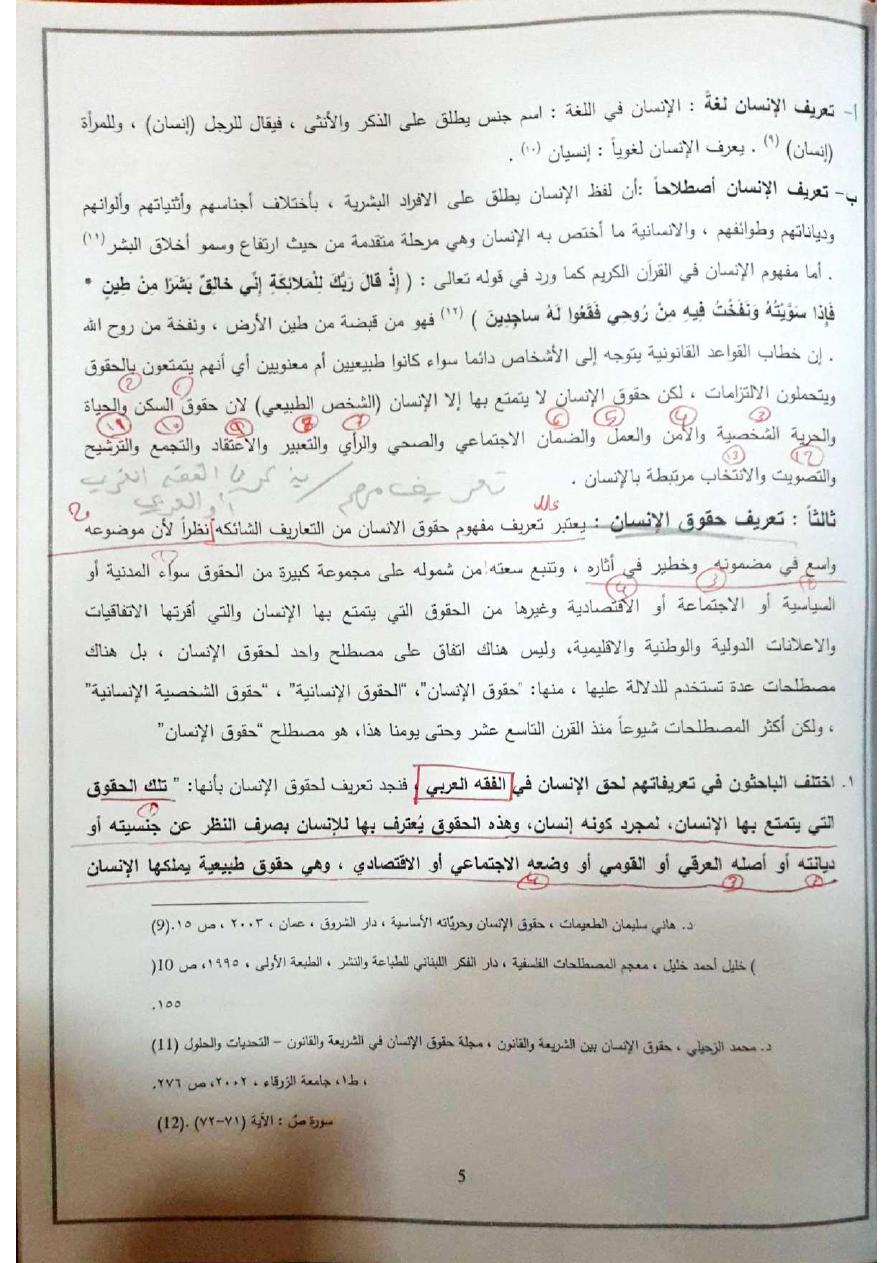 أ- تعريف الإنسان لغةً : الإنسان في اللغة : اسم جنس يطلق على الذكر والأنثى ، فيقال للرجل (إنسان) ، وللمرأة
(إنسان) (٩) . يعرف الإنسان لغوياً : إنسيان (١٠) .
ب- تعريف الإنسان أصطلاحاً :أن لفظ الإنسان يطلق على الافراد البشرية ، بأختلاف أجناسهم وأثنياتهم وألوانهم
ودياناتهم وطوائفهم ، والانسانية ما أختص به الإنسان وهي مرحلة متقدمة من حيث ارتفاع وسمو أخلاق البشر (١١)
. أما مفهوم الإنسان في القرآن الكريم كما ورد في قوله تعالى : ( إِذْ قَالَ رَبُّكَ لِلْمَلائِكَةِ إِنِّي خالِقٌ بَشَرًا مِنْ طِينٍ *
فَإِذا سَوَّيْتُهُ وَنَفَخْتُ فِيهِ مِنْ رُوحِي فَقَعُوا لَهُ ساجِدِينَ ) (١٢) فهو من قبضة من طين الأرض ، ونفخة من روح الله
. إن خطاب القواعد القانونية يتوجه إلى الأشخاص دائما سواء كانوا طبيعيين أم معنويين أي أنهم يتمتعون بالحقوق
ويتحملون الالتزامات ، لكن حقوق الإنسان لا يتمتع بها إلا الإنسان (الشخص الطبيعي) لان حقوق السكن والحياة
والحرية الشخصية والأمن والعمل والضمان الاجتماعي والصحي والرأي والتعبير والاعتقاد والتجمع والترشيح
والتصويت والانتخاب مرتبطة بالإنسان .
تعريف مهم / يذكر يا الفقه الغربي
او العربي
علل
ثالثاً : تعريف حقوق الإنسان : يعتبر تعريف مفهوم حقوق الانسان من التعاريف الشائكه نظراً لأن موضوعه
واسع في مضمونه وخطير في أثاره ، وتتبع سعته من شموله على مجموعة كبيرة من الحقوق سواء المدنية أو
السياسية أو الاجتماعة أو الاقتصادية وغيرها من الحقوق التي يتمتع بها الإنسان والتي أقرتها الاتفاقيات
والاعلانات الدولية والوطنية والاقليمية، وليس هناك اتفاق على مصطلح واحد لحقوق الإنسان ، بل هناك
مصطلحات عدة تستخدم للدلالة عليها ، منها: "حقوق الإنسان"، "الحقوق الإنسانية" ، "حقوق الشخصية الإنسانية"
، ولكن أكثر المصطلحات شيوعاً منذ القرن التاسع عشر وحتى يومنا هذا، هو مصطلح "حقوق الإنسان"
١. اختلف الباحثون في تعريفاتهم لحق الإنسان في الفقه العربي ، فنجد تعريف لحقوق الإنسان بأنها: " تلك الحقوق
التي يتمتع بها الإنسان، لمجرد كونه إنسان، وهذه الحقوق يُعترف بها للإنسان بصرف النظر عن جنسيته أو
ديانته أو أصله العرقي أو القومي أو وضعه الاجتماعي أو الاقتصادي ، وهي حقوق طبيعية يملكها الإنسان
د. هاني سليمان الطعيمات ، حقوق الإنسان وحريّاته الأساسية ، دار الشروق ، عمان ، ٢٠٠٣ ، ص ١٥.(9)
) خليل أحمد خليل ، معجم المصطلحات الفلسفية ، دار الفكر اللبناني للطباعة والنشر ، الطبعة الأولى ، ١٩٩٥، ص 10(
١٥٥.
د. محمد الزحيلي ، حقوق الإنسان بين الشريعة والقانون ، مجلة حقوق الإنسان في الشريعة والقانون – التحديات والحلول (11)
، ط١، جامعة الزرقاء ، ٢٠٠٢، ص ٢٧٦.
سورة صّ : الآية (٧١-٧٢) .(12)
5